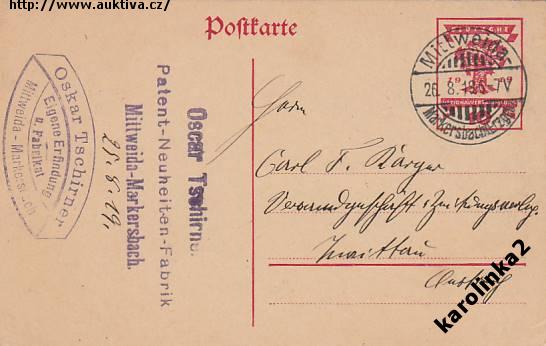 http://www.auktiva.cz/
Postkarte
Mittweida-
26.8.19.5-7V
Markersbach
Oskar Tschirner
Eigene Erfindung
u. Fabrikat
Mittweida - Markersbach
Oscar Tschirner
Patent-Neuheiten-Fabrik
Mittweida-Markersbach.
25.8.19.
Herrn
Carl F. Karger
Zwittau
karolinka2